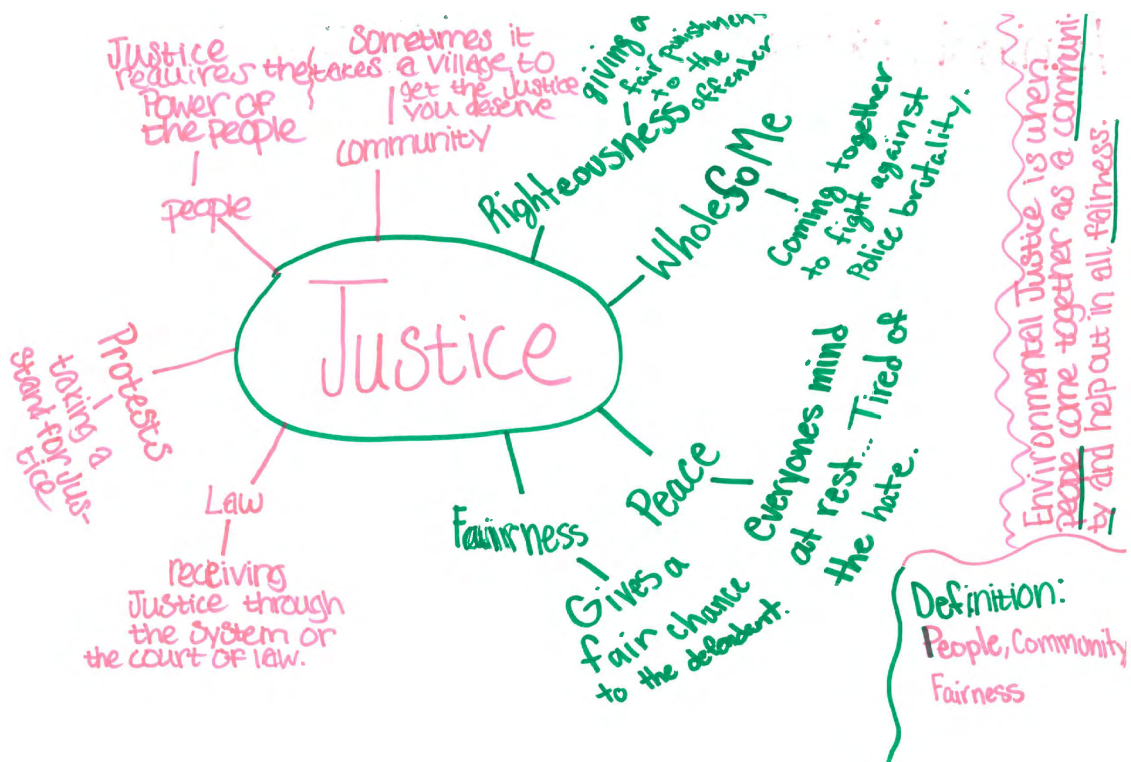 Justice
people
Justice
requires the
Power of
the people
community
Sometimes it
takes a village to
get the Justice
you deserve
Righteousness
giving a
fair punishment
to the
offender
WholeSoMe
Coming together
to fight against
Police brutality.
Peace
everyones mind
at rest... Tired of
the hate.
Fairness
Gives a
fair chance
to the defendent.
Law
receiving
Justice through
the system or
the court of law.
Protests
taking a
stand for Jus-
tice
Environmental Justice is when
People come together as a communi-
ty and help out in all fairness.
Definition:
People, Community
Fairness